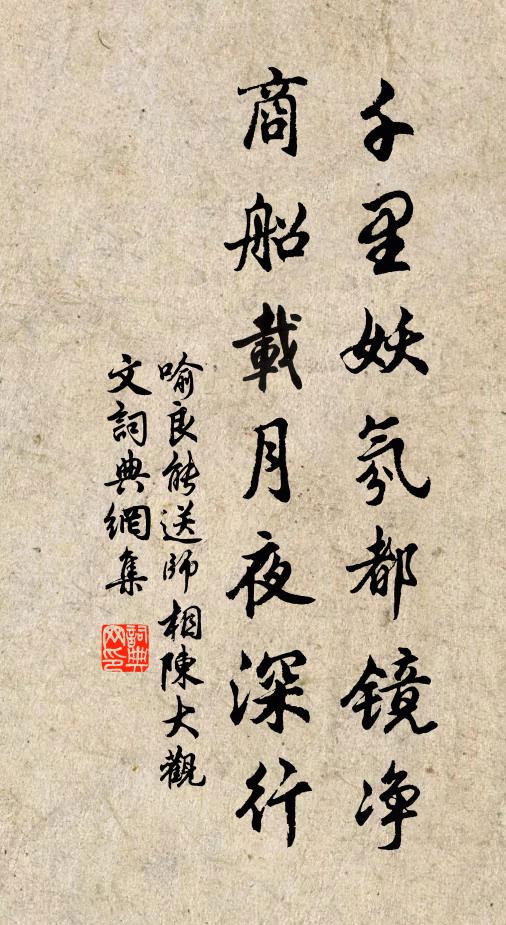 千里妖氛都镜净
商船載月夜深行
喻良能送師相陳大觀
文詞典網集
詞典
网印